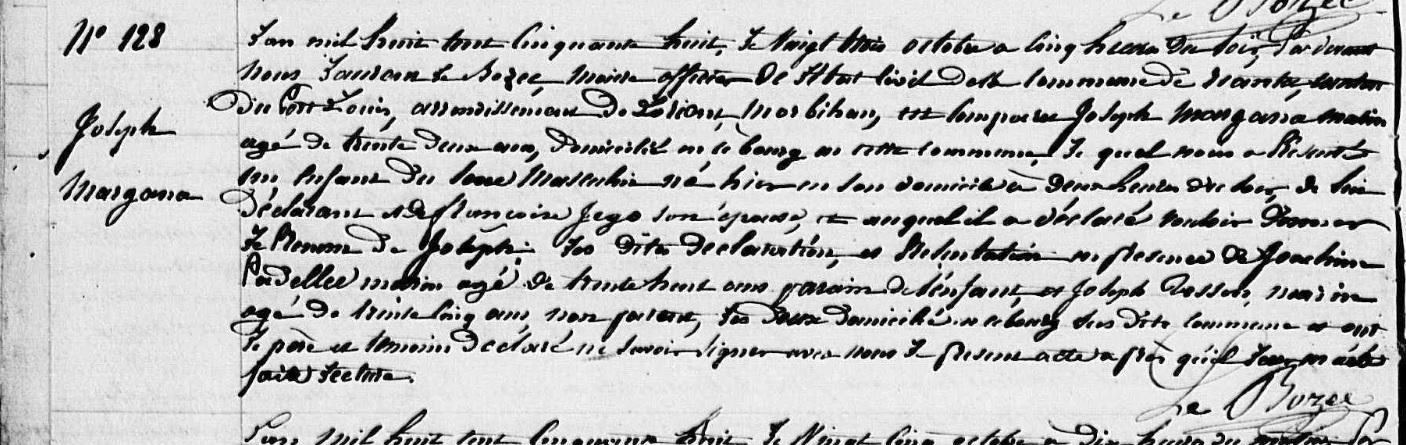 Le Bozec
N° 128
Joseph
Margana
L'an mil huit cent cinquante huit, le vingt trois octobre a cinq heures du soir, Pardevant
nous Laurent Le Bozec Maire officier de l'État Civil de la commune de Riantec, canton
du Port Louis, arrondissement de Lorient, Morbihan, est comparu Joseph Margana marin
agé de trente deux ans, domicilié en ce bourg en cette commune, le quel nous a Présenté
un Enfant du sexe Masculin né hier en son domicile à deux heures du soir, de lui
Déclarant & de Françoise Jego son épouse, et auquel il a déclaré vouloir donner
le Prénom de Joseph. Les dites déclaration, et Présentation en présence de Joachim
Padellec marin agé de trente huit ans parain de l'enfant, et Joseph Rosso, marin
agé de trente cinq ans non parent, les deux domiciliés en ce bourg sus dite commune et ont
le père et témoins déclaré ne savoir signer avec nous le présent acte après qu'il leur en a été
fait lecture.
Le Bozec
L'an mil huit cent cinquante huit le vingt cinq octobre a dix heures du matin Par